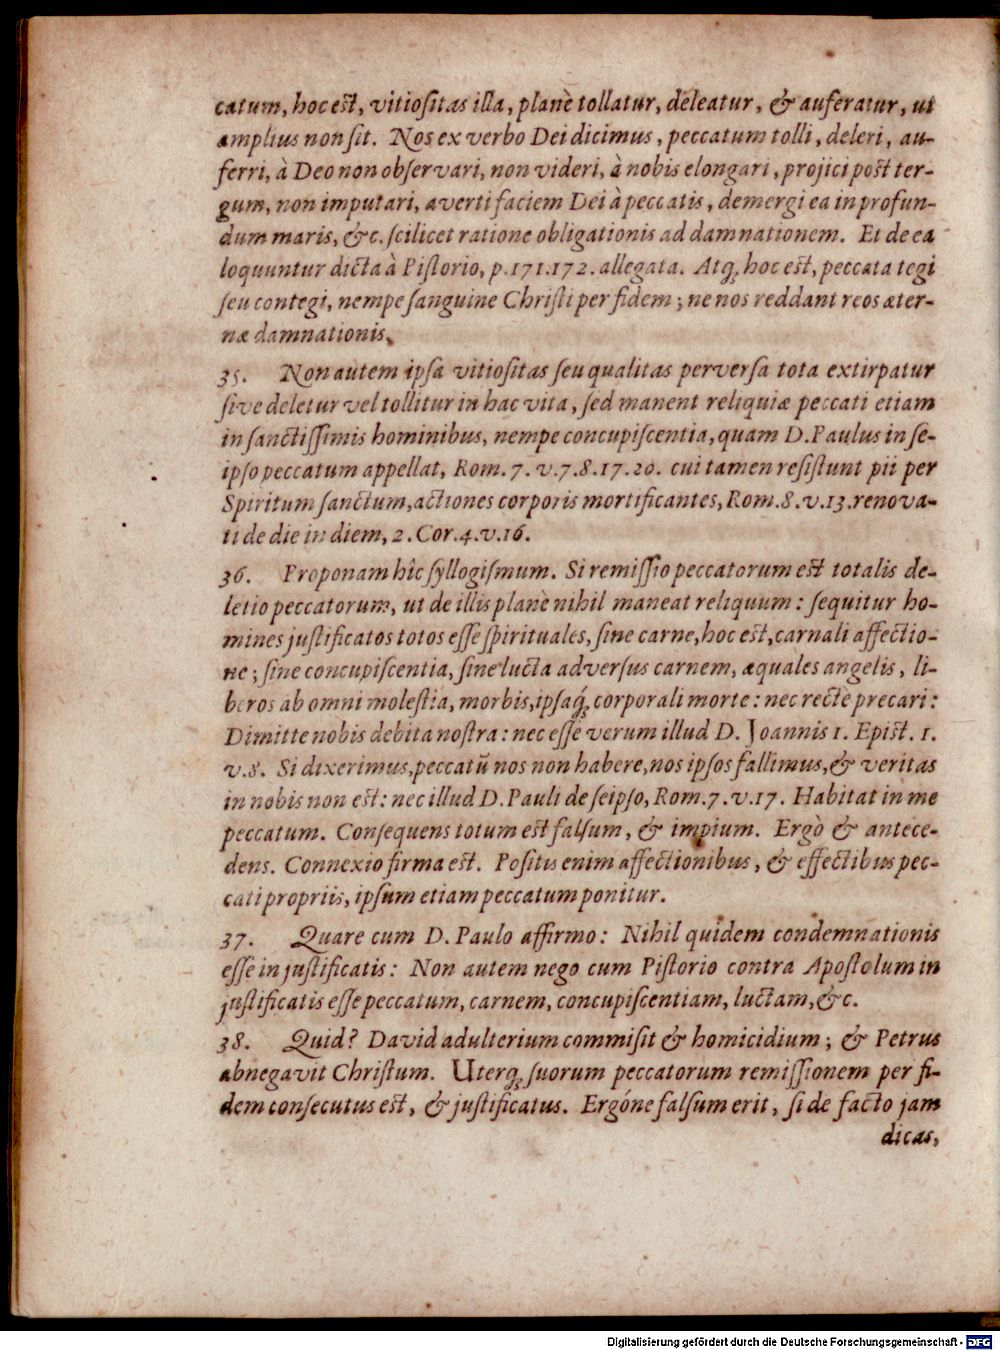 catum, hoc est, vitiositas illa, planè tollatur, deleatur, & auferatur, ut
amplius non sit. Nos ex verbo Dei dicimus, peccatum tolli, deleri, au-
ferri, à Deo non observari, non videri, à nobis elongari, projici post ter-
gum, non imputari, averti faciem Dei à peccatis, demergi ea in profun-
dum maris, &c. scilicet ratione obligationis ad damnationem. Et de ea
loquuntur dicta à Pistorio, p. 171. 172. allegata. Atq; hoc est, peccata tegi
seu contegi, nempe sanguine Christi per fidem; ne nos reddant reos æter-
næ damnationis.
35. Non autem ipsa vitiositas seu qualitas perversa tota extirpatur
sive deletur vel tollitur in hac vita, sed manent reliquiæ peccati etiam
in sanctissimis hominibus, nempe concupiscentia, quam D. Paulus in se-
ipso peccatum appellat, Rom. 7. v. 7. 8. 17. 20. cui tamen resistunt pii per
Spiritum sanctum, actiones corporis mortificantes, Rom. 8. v. 13. renova-
ti de die in diem, 2. Cor. 4. v. 16.
36. Proponam hîc syllogismum. Si remissio peccatorum est totalis de-
letio peccatorum, ut de illis planè nihil maneat reliquum: sequitur ho-
mines justificatos totos esse spirituales, sine carne, hoc est, carnali affectio-
ne; sine concupiscentia, sine lucta adversus carnem, æquales angelis, li-
beros ab omni molestia, morbis, ipsaq; corporali morte: nec rectè precari:
Dimitte nobis debita nostra: nec esse verum illud D. Joannis 1. Epist. 1.
v. 8. Si dixerimus, peccatū nos non habere, nos ipsos fallimus, & veritas
in nobis non est: nec illud D. Pauli de seipso, Rom. 7. v. 17. Habitat in me
peccatum. Consequens totum est falsum, & impium. Ergò & antece-
dens. Connexio firma est. Positis enim affectionibus, & effectibus pec-
cati propriis, ipsum etiam peccatum ponitur.
37. Quare cum D. Paulo affirmo: Nihil quidem condemnationis
esse in justificatis: Non autem nego cum Pistorio contra Apostolum in
justificatis esse peccatum, carnem, concupiscentiam, luctam, &c.
38. Quid? David adulterium commisit & homicidium; & Petrus
abnegavit Christum. Uterq; suorum peccatorum remissionem per fi-
dem consecutus est, & justificatus. Ergóne falsum erit, si de facto jam
dicas,
Digitalisierung gefördert durch die Deutsche Forschungsgemeinschaft - DFG